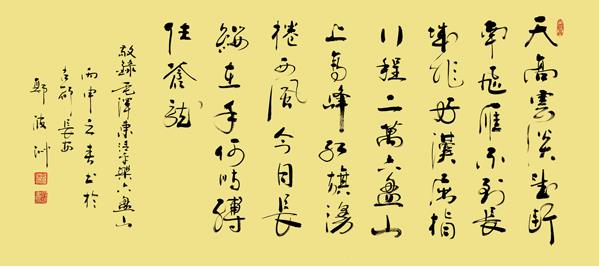 天高雲淡望断
南飛雁不到長
城非好漢屈指
行程二萬六盤山
上高峰紅旗漫
捲西風今日長
纓在手何時縛
住蒼龍
敬錄毛澤東清平樂六盤山
丙申之春书於
古都長安
鄭波洲